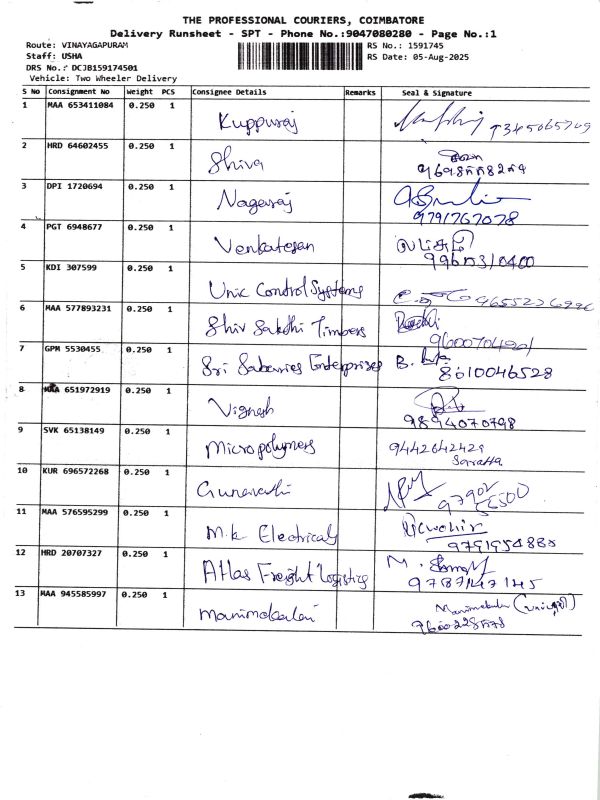 THE PROFESSIONAL COURIERS, COIMBATORE
Delivery Runsheet - SPT - Phone No.:9047080280 - Page No.:1
Route: VINAYAGAPURAM
Staff: USHA
DRS No.: DCJB159174501
Vehicle: Two Wheeler Delivery
RS No.: 1591745
RS Date: 05-Aug-2025
S No Consignment No Weight PCS Consignee Details Remarks Seal & Signature
1 MAA 653411084 0.250 1 Kuppuraj
2 HRD 64602455 0.250 1 Shiva
3 DPI 1720694 0.250 1 Nagaraj
9791767078
4 PGT 6948677 0.250 1 Venkatesan
9960310400
5 KDI 307599 0.250 1 Unic Control Systems
6 MAA 577893231 0.250 1 Shiv Sakthi Timbers
7 GPM 5530455 0.250 1 Sri Sabaries Enterprises
8010046528
8 MAA 651972919 0.250 1 Vignesh
9894070798
9 SVK 65138149 0.250 1 Micropolymers 9442642429
10 KUR 696572268 0.250 1 Gunavathi
11 MAA 576595299 0.250 1 M.K Electricals
9791954885
12 HRD 20707327 0.250 1 Atlas Freight Logistics
9787147145
13 MAA 945585997 0.250 1 Manimekalai